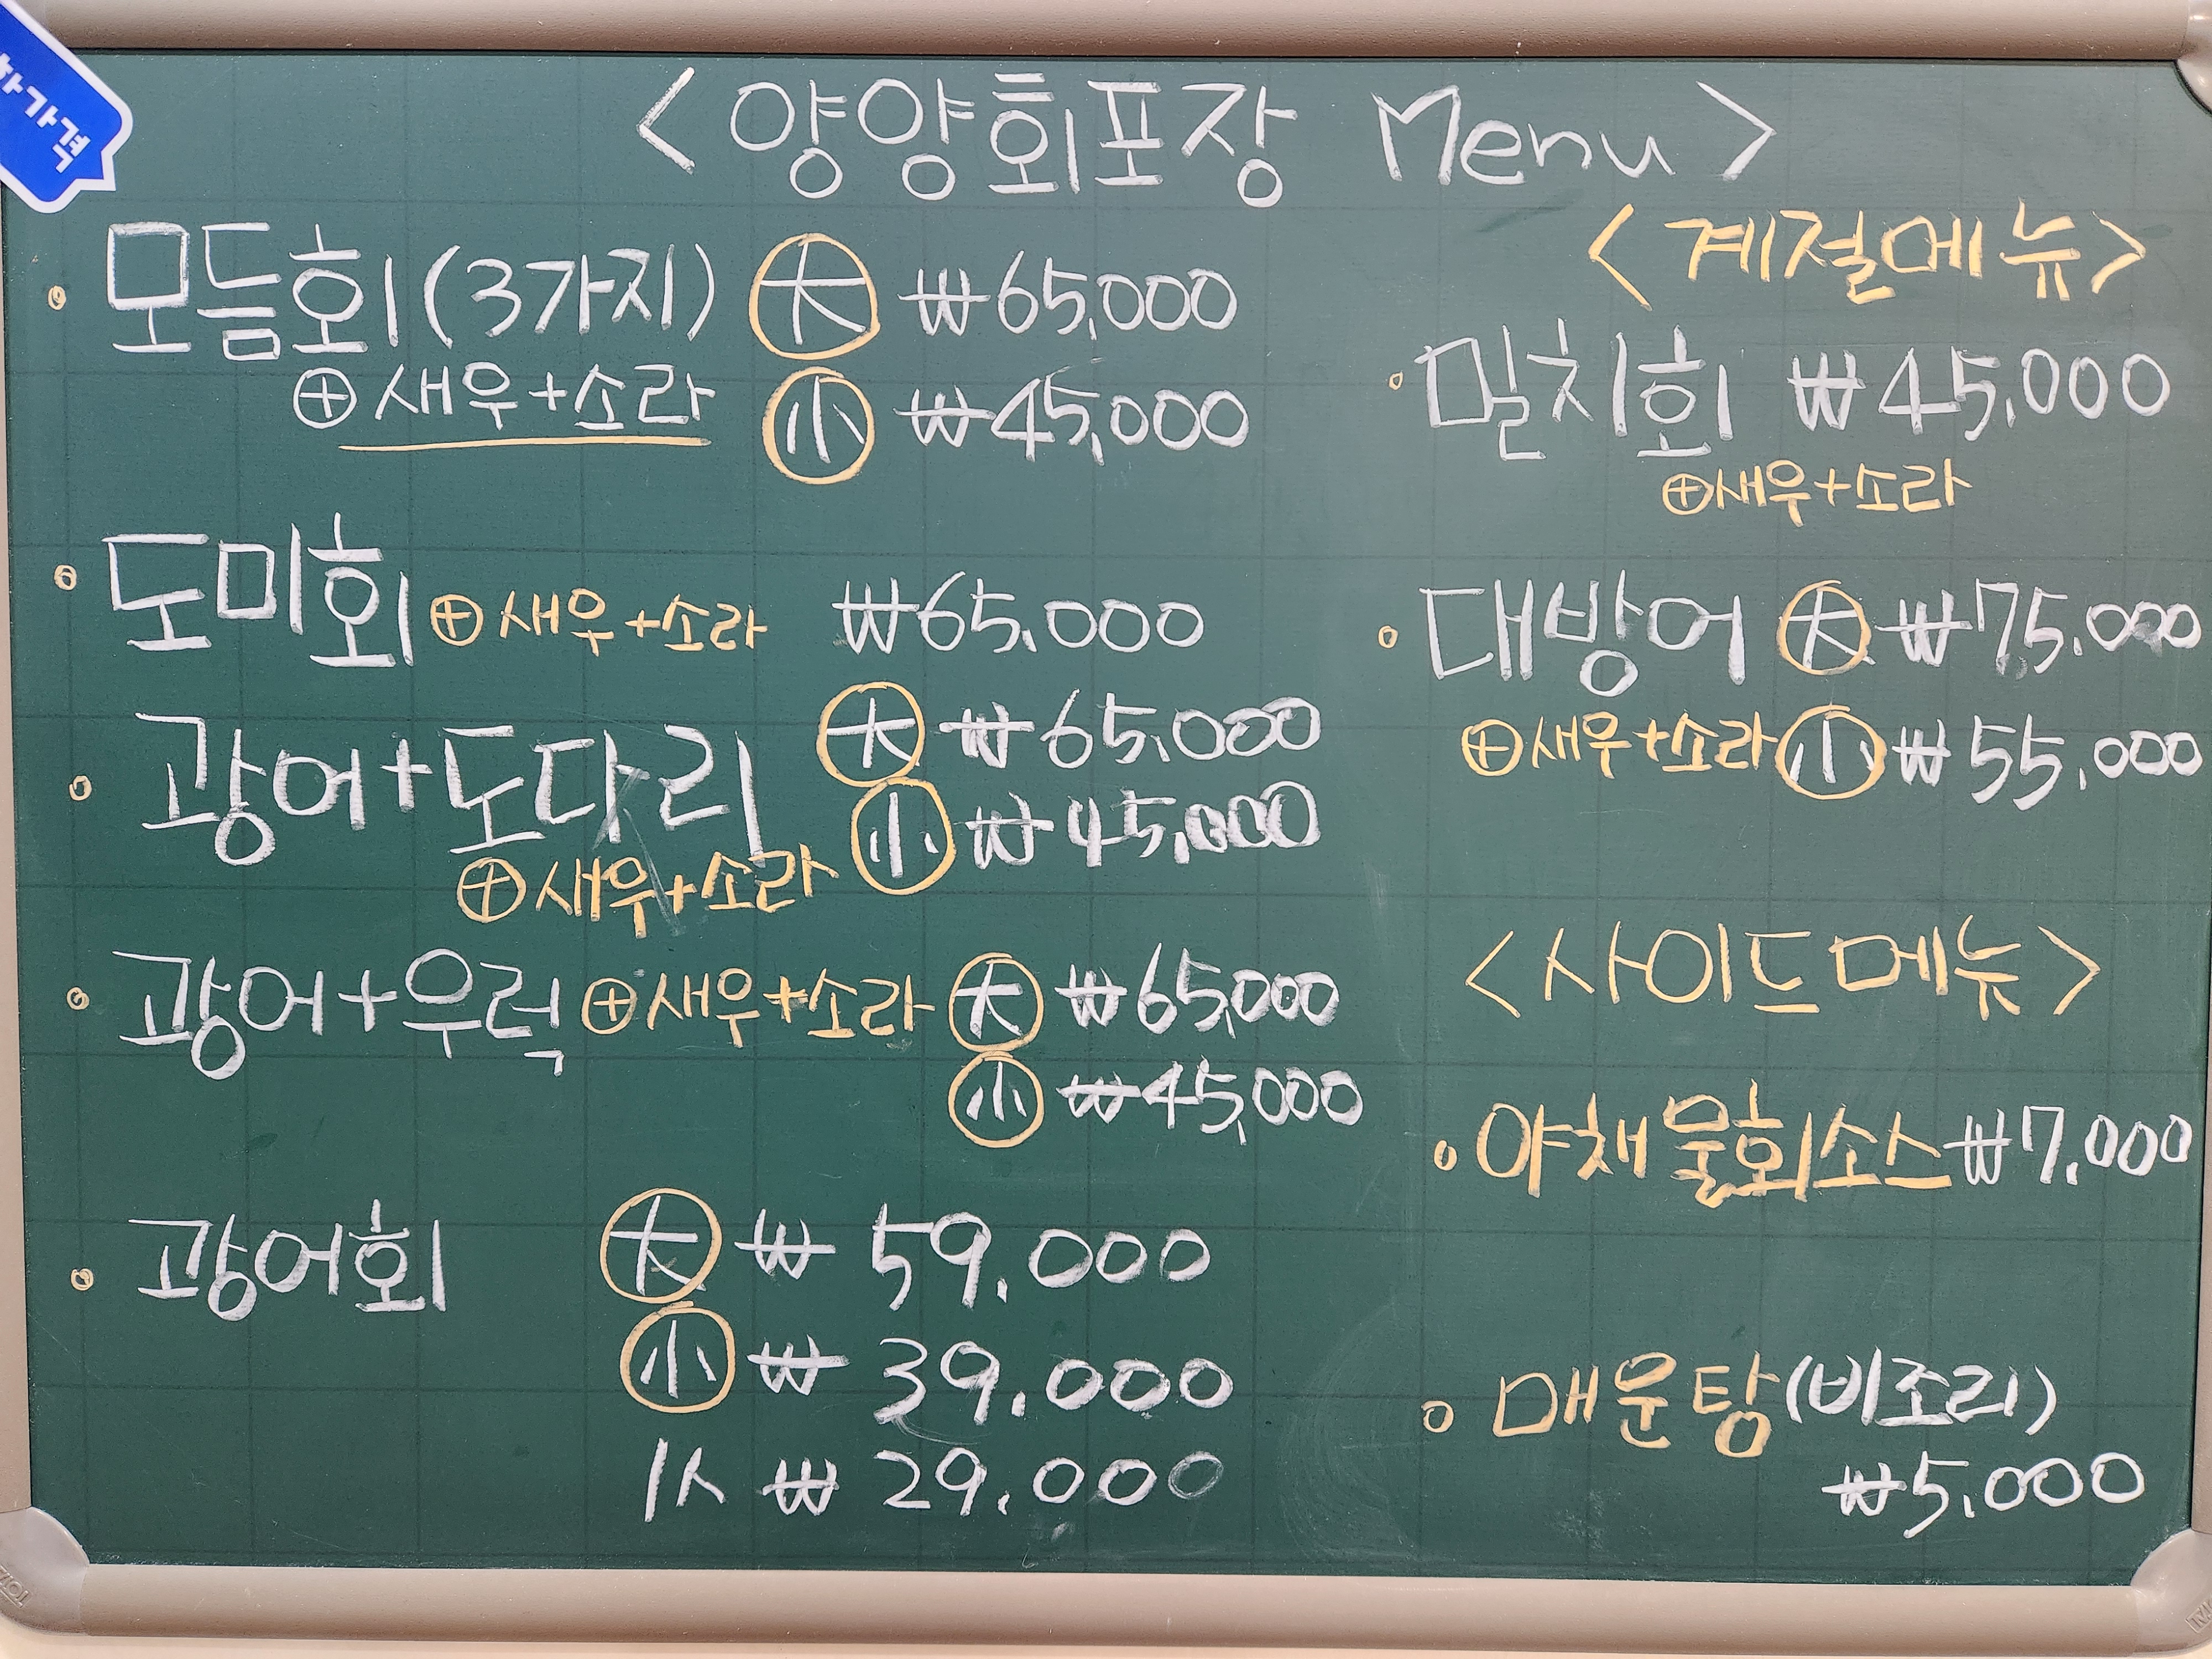 <양양회포장 Menu>
모듬회(3가지) 大 ₩65,000
⊕새우+소라 小 ₩45,000
도미회⊕새우+소라 ₩65,000
광어+도다리 大 ₩65,000
小 ₩45,000
⊕새우+소라
광어+우럭⊕새우+소라 大 ₩65,000
小 ₩45,000
광어회 大 ₩ 59,000
小 ₩ 39,000
1人 ₩ 29,000
<계절메뉴>
밀치회 ₩45,000
⊕새우+소라
대방어 大 ₩75,000
⊕새우+소라 小 ₩55,000
<사이드메뉴>
야채물회소스 ₩7,000
매운탕(비조리)
₩5,000